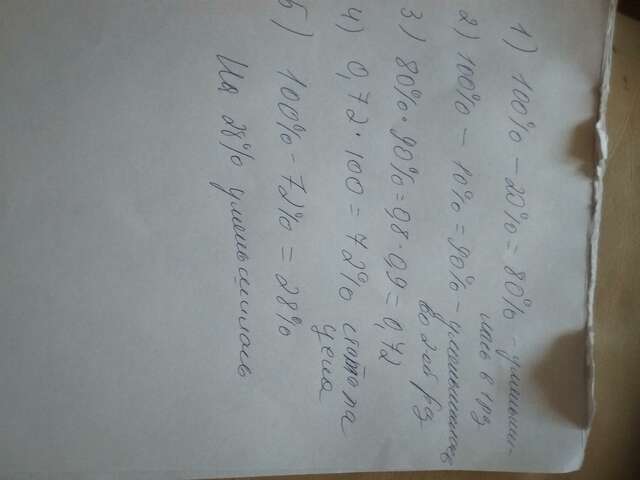 1) 100% - 20% = 80% - уменьши-
лась в 1 рз
2) 100% - 10% = 90% - уменьшилась
во 2ой рз
3) 80% · 90% = 0,8 · 0,9 = 0,72
4) 0,72 · 100 = 72% стала
цена
5) 100% - 72% = 28%
На 28% уменьшилась